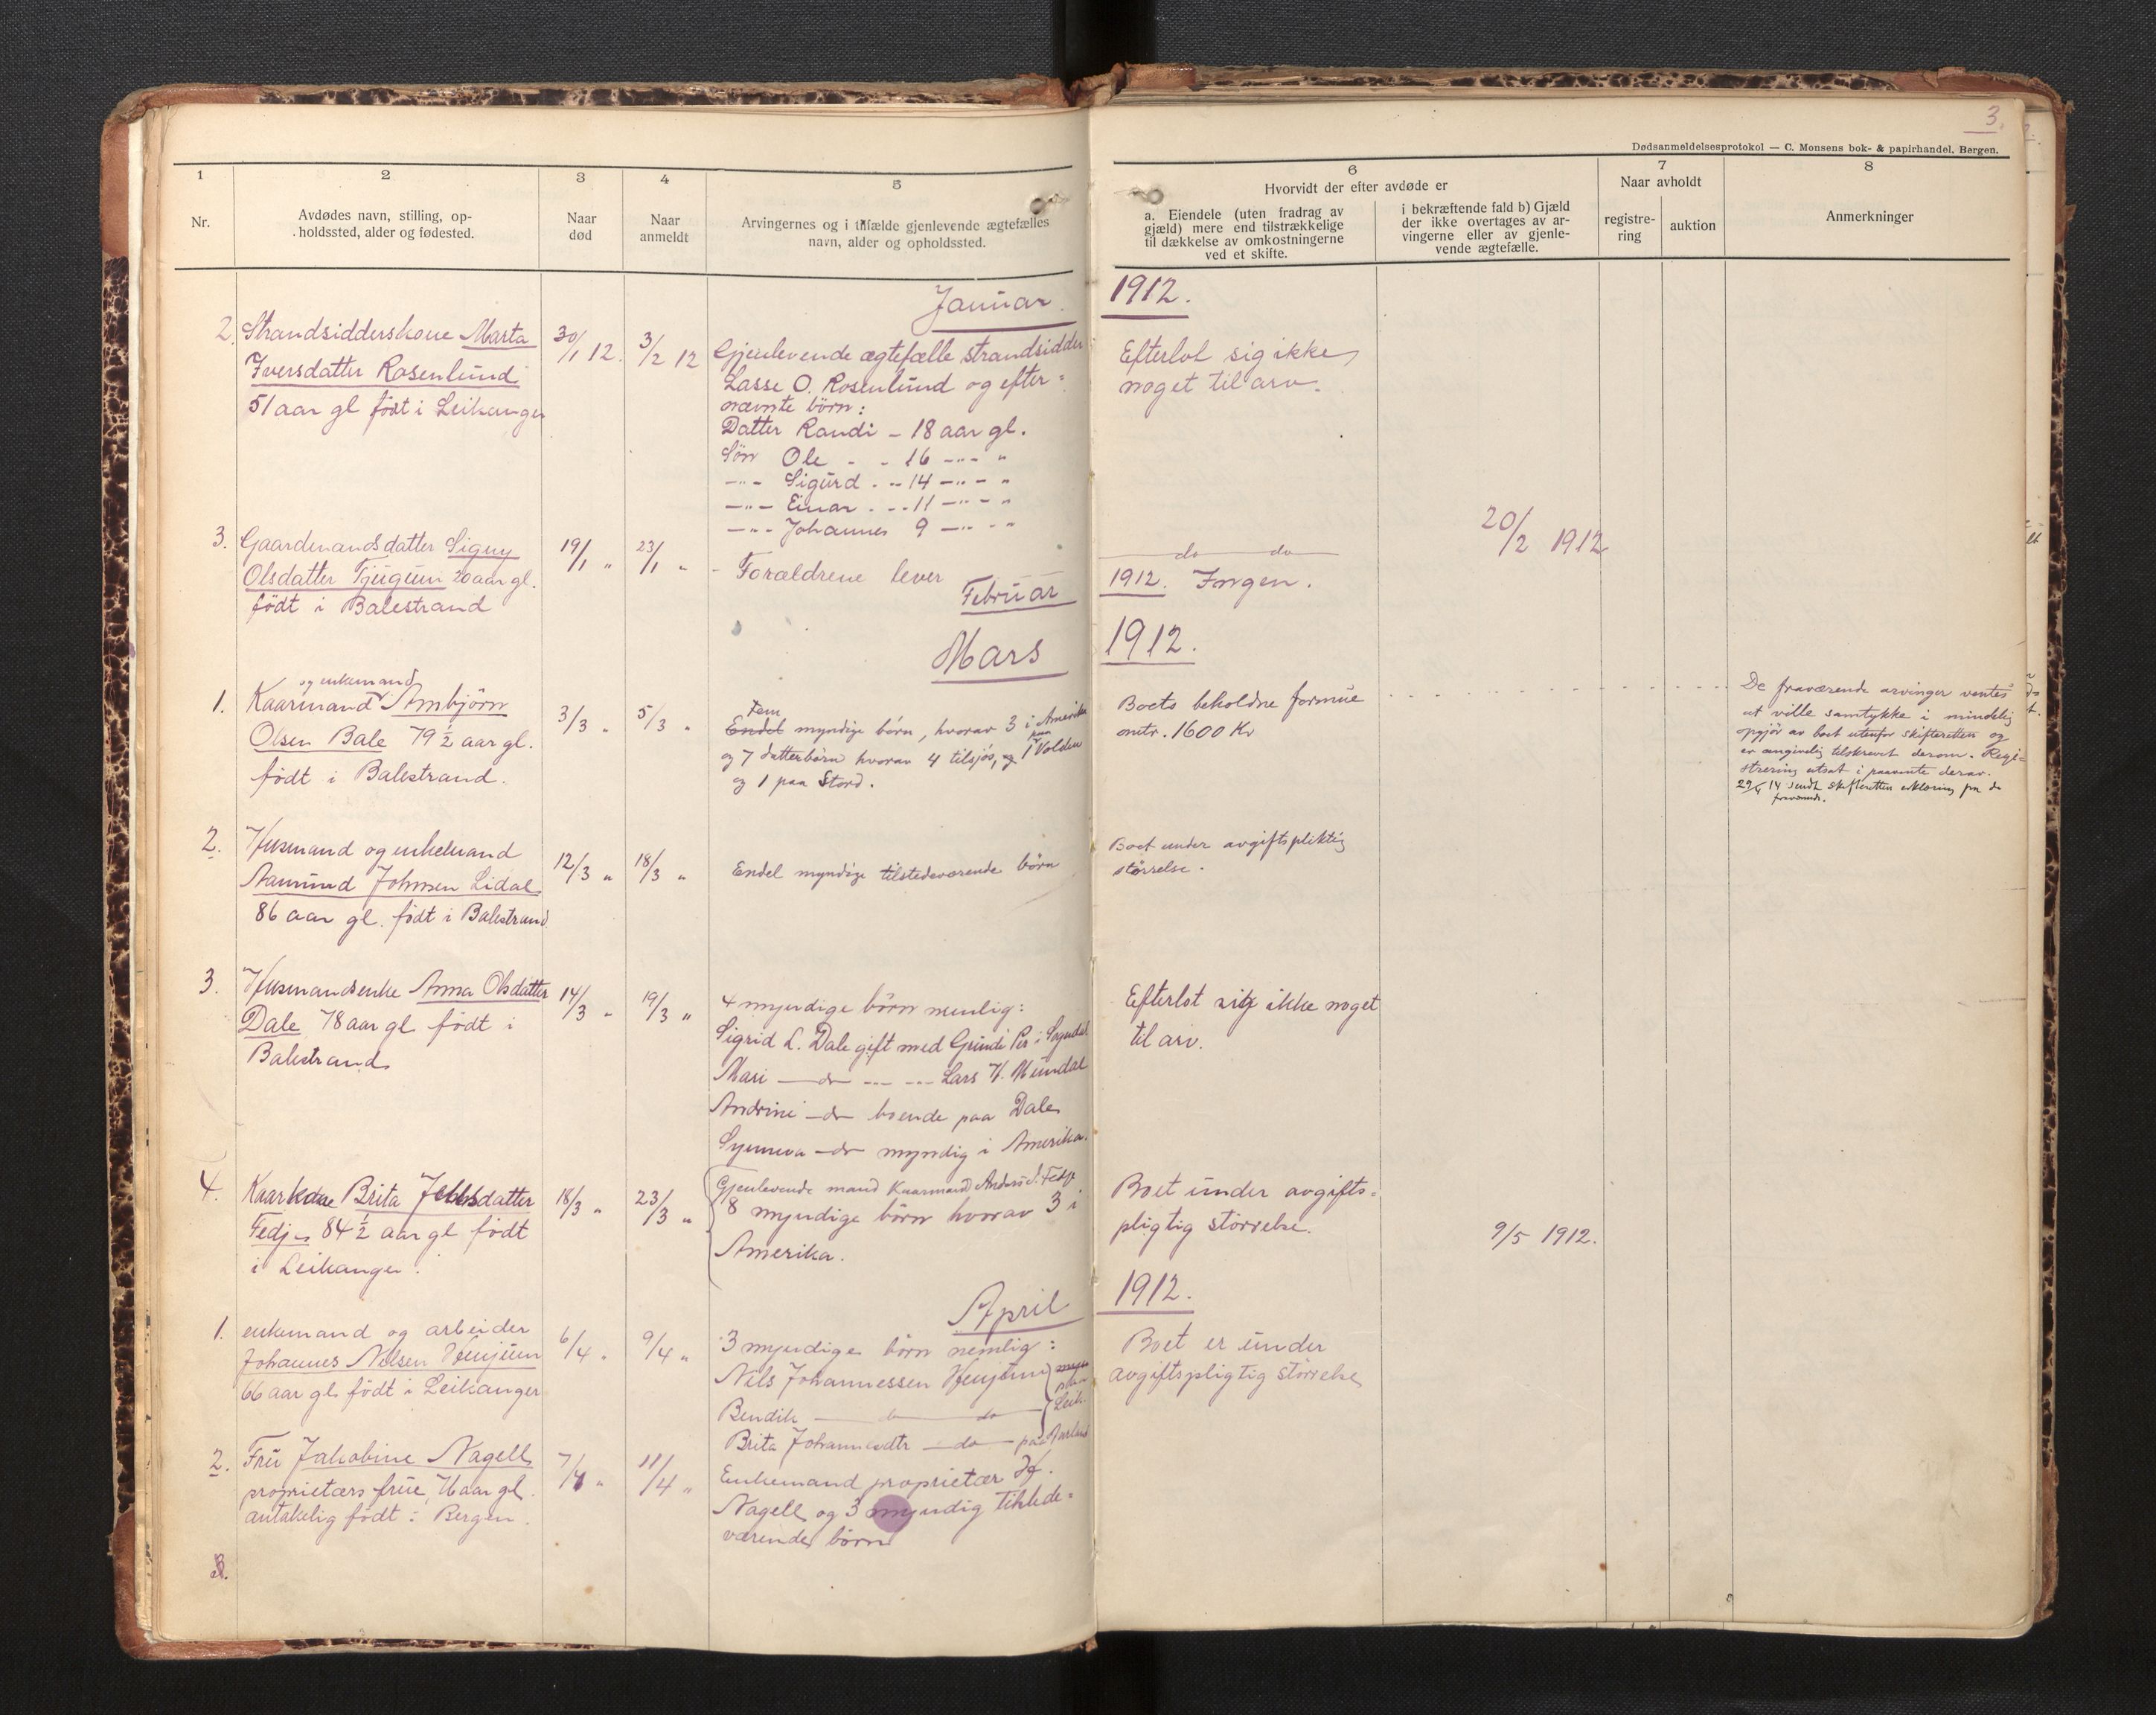 3.
Dødsanmeldelsesprotokol — C. Monsens bok- & papirhandel, Bergen.
1
2
3
4
5
6
7
8
Nr.
Avdødes navn, stilling, op-
holdssted, alder og fødested.
Naar
død
Naar
anmeldt
Arvingernes og i tilfælde gjenlevende ægtefælles
navn, alder og opholdssted.
Hvorvidt der efter avdøde er
a. Eiendele (uten fradrag av
gjæld) mere end tilstrækkelige
til dækkelse av omkostningerne
ved et skifte.
i bekræftende fald b) Gjæld
der ikke overtages av ar-
vingerne eller av gjenle-
vende ægtefælle.
Naar avholdt
registre-
ring
auktion
Anmerkninger
Januar 1912.
2. Strandsidderskone Marta
Iversdatter Rosenlund
51 aar gl født i Leikanger
30/1 12.
3/2 12
Gjenlevende ægtefælle strandsidder
Lasse O. Rosenlund og efter-
nævnte børn:
Datter Randi – 18 aar gl.
Søn Ole - - 16 -"- "
-"- Sigurd - - 14 -"- "
-"- Einar - - 11 -"- "
-"- Johannes 9 -"- "
Efterlot sig ikke
noget til arv.
3. Gaardmandsdatter Signy
Olsdatter Tjugum 20 aar gl.
født i Balestrand
19/1 "
23/1 "
- Forældrene lever
do do
20/2 1912
Februar 1912. Ingen.
Mars 1912.
1. og enkemand
Kaarmand Ambjørn
Olsen Bale 79 1/2 aar gl.
født i Balestrand.
3/3 "
5/3 "
Fem
Endel myndige børn, hvorav 3 i Amerika
paa
og 7 datterbørn hvorav 4 tilsjøs, og 1 Volden
og 1 paa Stord.
Boets beholdne formue
omtr. 1600 Kr
De fraværende arvinger ventes
at ville samtykke i mindelig
opgjør av boet utenfor skifteretten og
er angivelig tilskrevet derom. Regi-
strering utsat i paavente derav.
29/4 14 sendt skifteretten erklæring fra de
fraværende.
2. Husmand og enkemand
Aamund Johnsen Lidal
86 aar gl. født i Balestrand
12/3 "
18/3 "
Endel myndige tilstedeværende børn
Boet under avgiftspliktig
størrelse.
3. Husmandsenke Anna Olsdatter
Dale 78 aar gl født i
Balestrand
14/3 "
19/3 "
4 myndige børn nemlig:
Sigrid L. Dale gift med Grinde Per i Sogndal
Mari — do — --- Lars H. Mundal
Andrine — do — boende paa Dale
Synneva — do — myndig i Amerika.
Efterlot sig ikke noget
til arv.
4. Kaarkone Brita Jensdatter
Fedje 84 1/2 aar gl født
i Leikanger.
18/3 "
23/3 "
Gjenlevende mand Kaarmand Anders J. Fedje
8 myndige børn hvorav 3 i
Amerika.
Boet under avgifts-
pligtig størrelse.
9/5 1912.
April 1912.
1. enkemand og arbeider
Johannes Nilsen Henjum
66 aar gl født i Leikanger
6/4 "
9/4 "
3 myndige børn nemlig:
Nils Johannessen Henjum
Bendik — do — do — Leik.
Brita Johannesdtr — do — paa Aurland
Boet er under
avgiftspligtig størrelse
2. Fru Jakobine Nagell
proprietærs frue, 76 aar gl.
antakelig født i Bergen.
7/4 "
11/4 "
Enkemand proprietær
Nagell og 3 myndig tilstede-
værende børn
3.